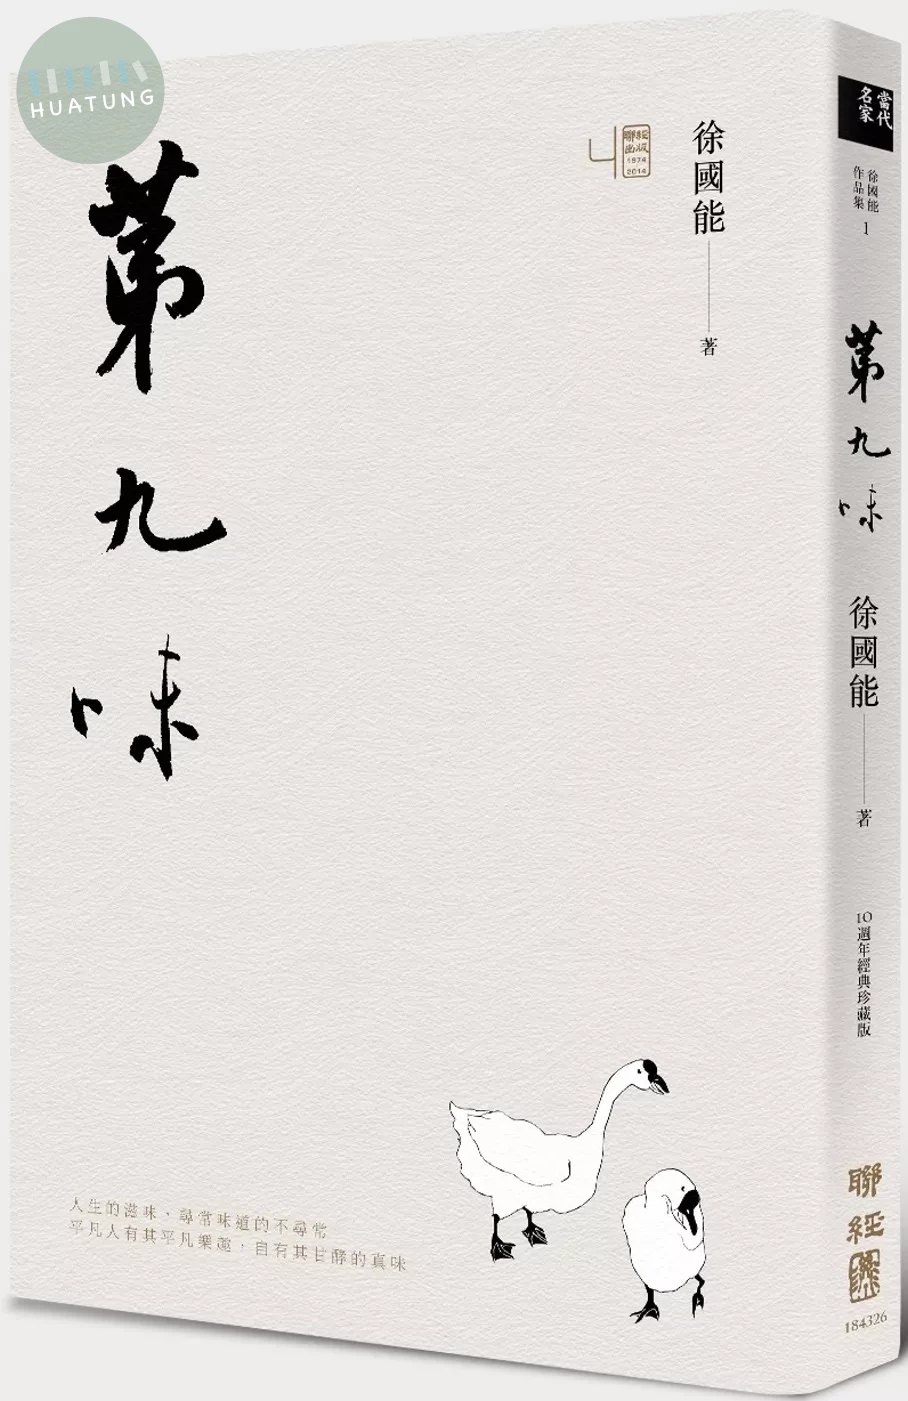 HUATUNG
第九味
聯經出版
1974
2014
徐國能
著
人生的滋味，尋常味道的不尋常
平凡人有其平凡樂趣，自有其甘醇的真味
當代名家
徐國能作品集 1
第九味
徐國能
著
10週年經典珍藏版
聯經
184326